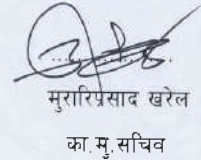 मुरारिप्रसाद खरेल
का.मु.सचिव